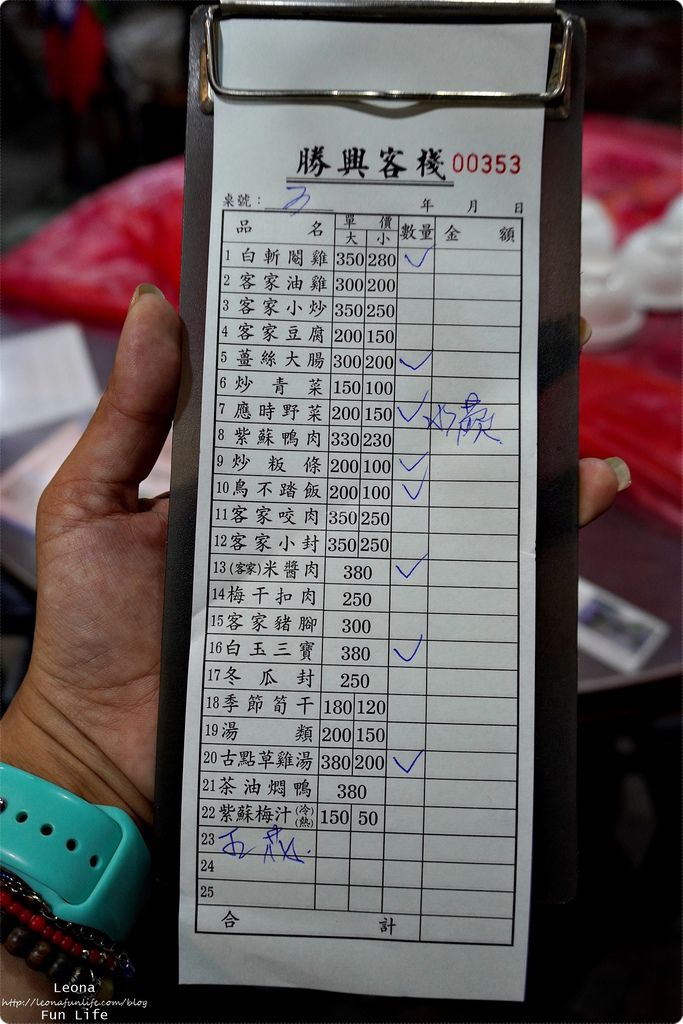 勝興客棧 00353
桌號： 年 月 日
品名 單價 數量 金額
大 小
1 白斬閹雞 350 280 ✓
2 客家油雞 300 200
3 客家小炒 350 250
4 客家豆腐 200 150
5 薑絲大腸 300 200 ✓
6 炒青菜 150 100
7 應時野菜 200 150 ✓ 水蕨
8 紫蘇鴨肉 330 230
9 炒粄條 200 100 ✓
10 鳥不踏飯 200 100 ✓
11 客家咬肉 350 250
12 客家小封 350 250
13 (客家)米醬肉 380 ✓
14 梅干扣肉 250
15 客家豬腳 300
16 白玉三寶 380 ✓
17 冬瓜封 250
18 季節筍干 180 120
19 湯類 200 150
20 古點草雞湯 380 200 ✓
21 茶油燜鴨 380
22 紫蘇梅汁(冷)(熱) 150 50
23
24
25
合計
Leona
http://leonafunlife.com/blog
Fun Life